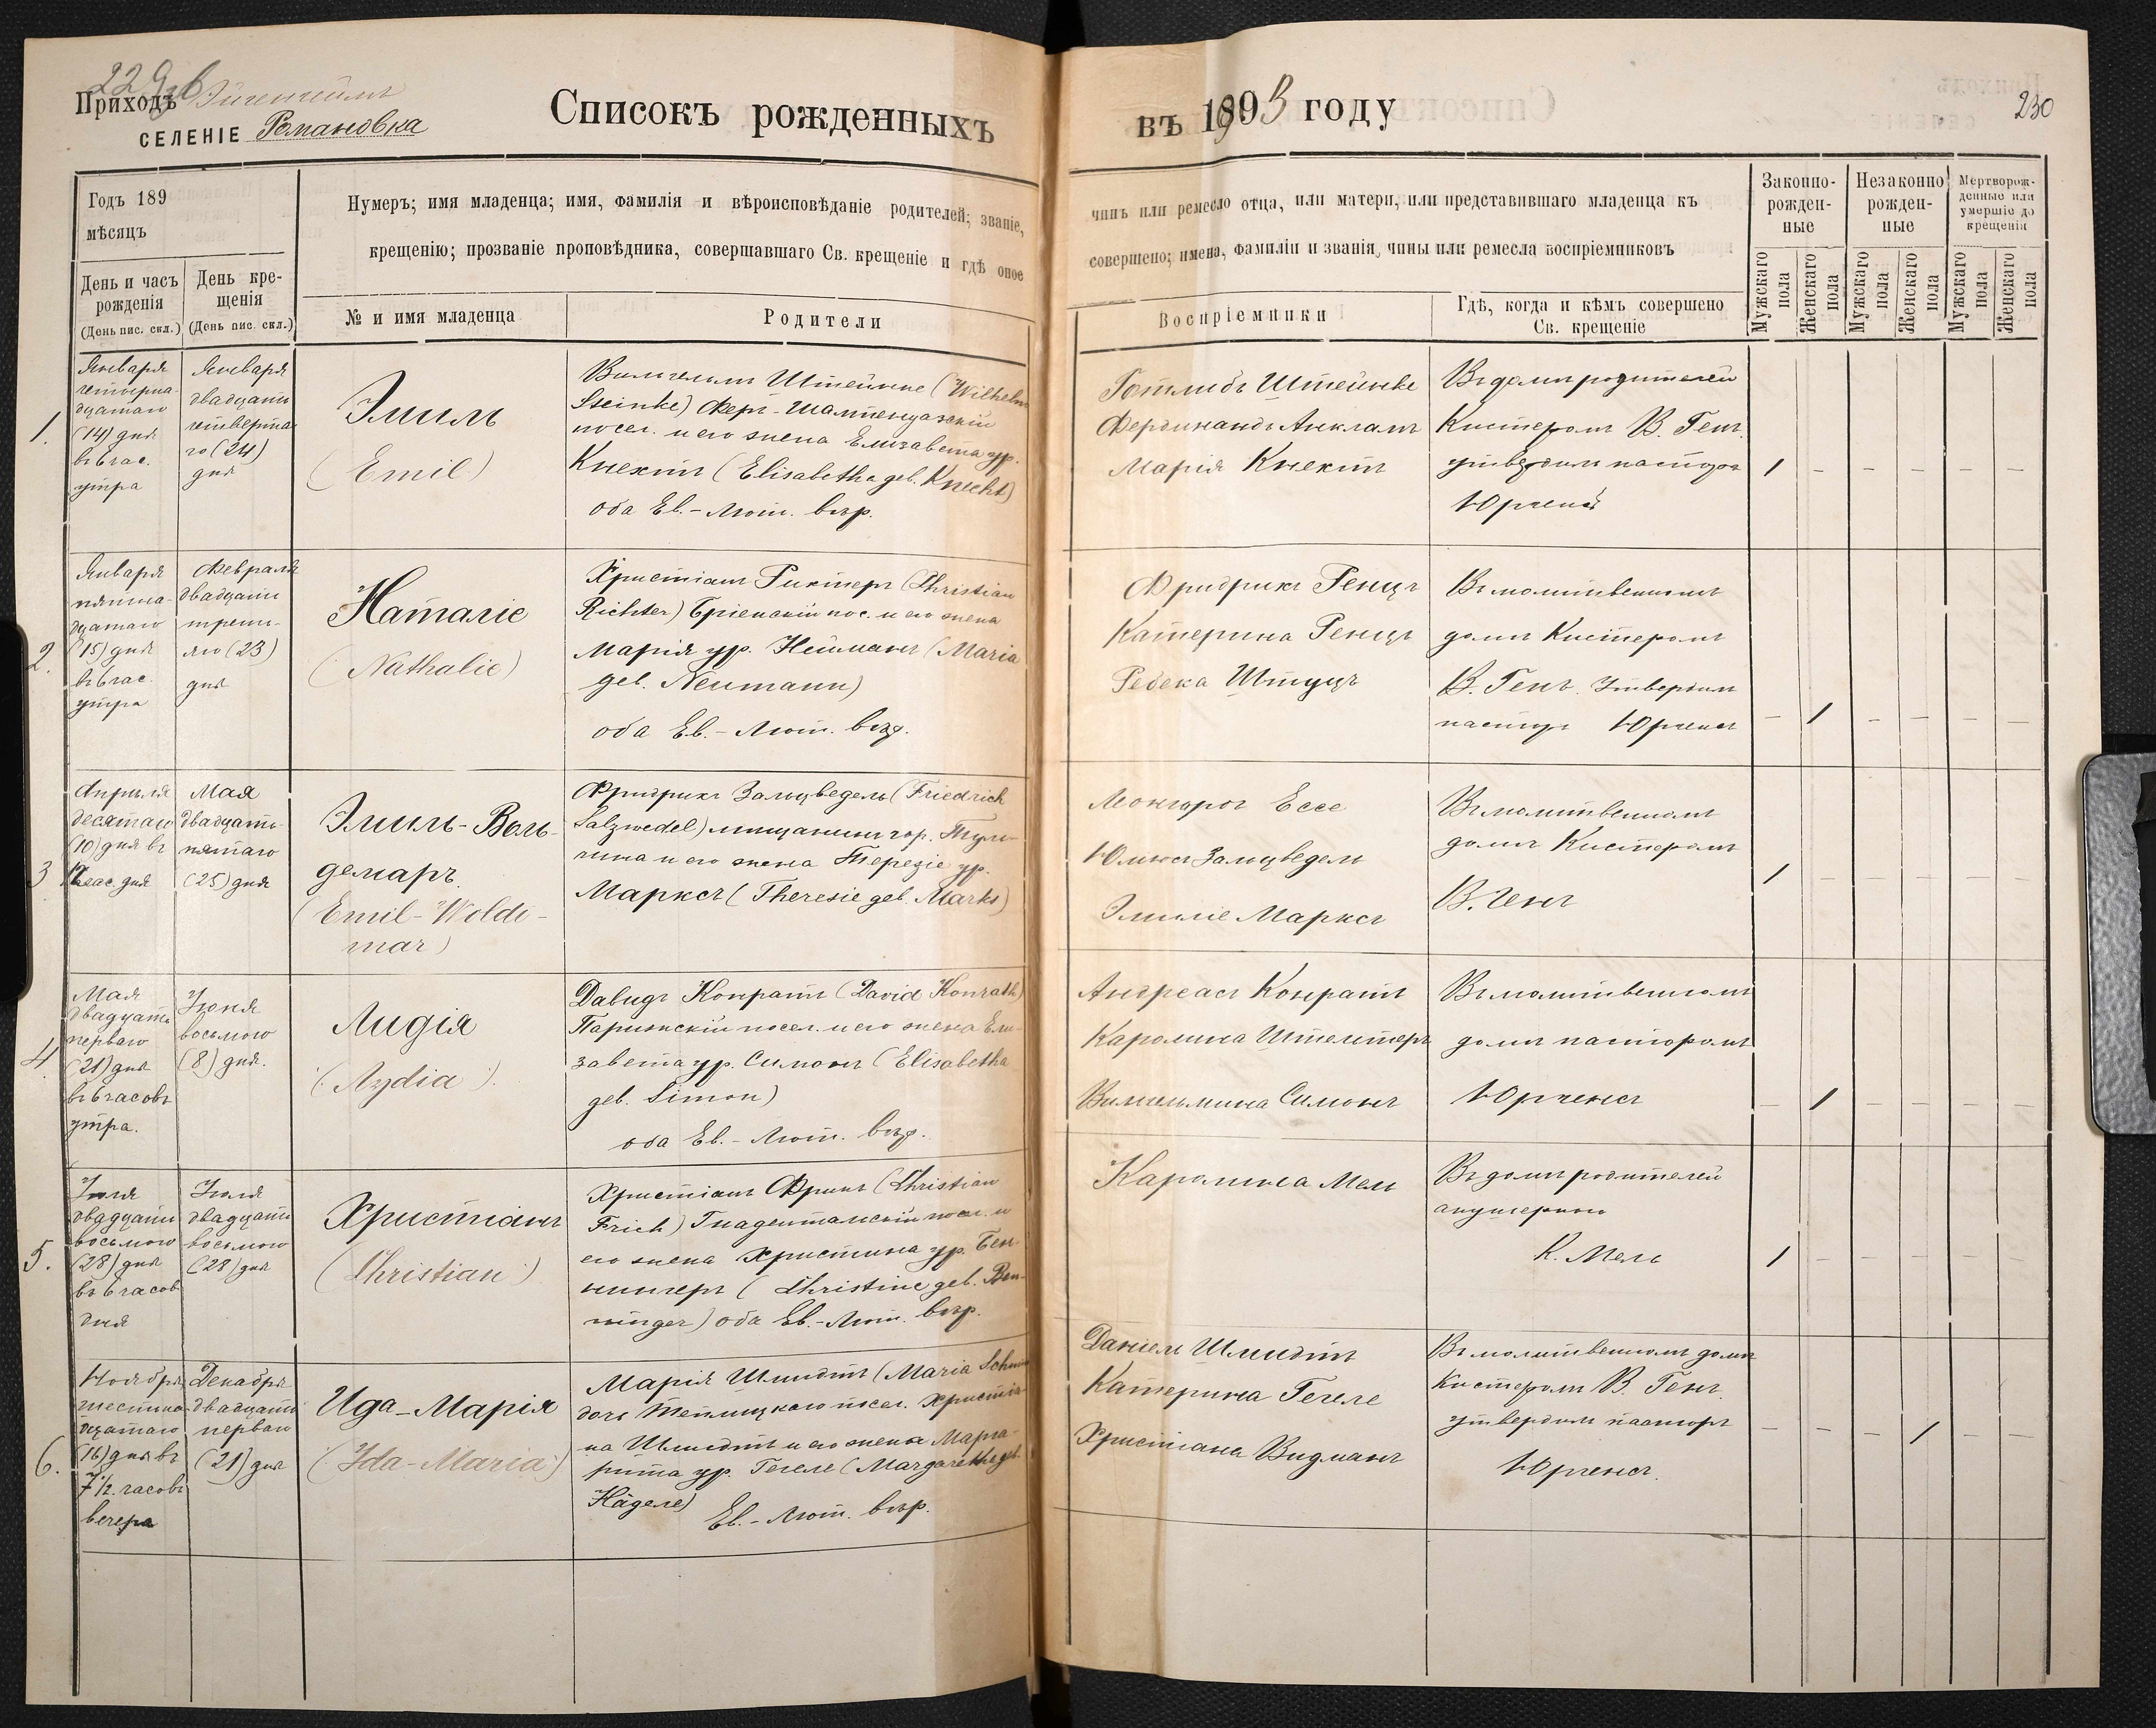 229об
Приходъ Эйгенгеймъ
СЕЛЕНІЕ Романовка
Списокъ рожденныхъ
въ 1903 году
230
Годъ 189
мѣсяцъ
День и часъ
рожденія
(День пис. скл.)
День кре-
щенія
(День пис. скл.)
Нумеръ; имя младенца; имя, фамилія и вѣроисповѣданіе родителей; званіе,
крещенію; прозваніе проповѣдника, совершавшаго Св. крещеніе и гдѣ оное
№ и имя младенца
Родители
чинъ или ремесло отца, или матери, или представившаго младенца къ
совершено; имена, фамиліи и званія, чины или ремесла воспріемниковъ
Воспріемники
Гдѣ, когда и кѣмъ совершено
Св. крещеніе
Законно-
рожден-
ные
Незаконно
рожден-
ные
Мертворож-
денные или
умершіе до
крещенія
Мужскаго
пола
Женскаго
пола
Мужскаго
пола
Женскаго
пола
Мужскаго
пола
Женскаго
пола
1.
Января
четырна-
дцатаго
(14) дня
въ 6 час.
утра
Января
двадцати
четверта-
го (24)
дня
Эмиль
(Emil)
Вильгельмъ Штейнке (Wilhelm
Steinke) Ферг-Шампенуазскій
посел. и его жена Елизавета ур.
Кнехтъ (Elisabetha geb. Knecht)
оба Ев.-Лют. вѣр.
Готлибъ Штейнке
Фердинандъ Анкламъ
Марія Кнехтъ
Въ домѣ родителей
Кистеромъ В. Генъ.
утвердилъ пасторъ
Юргенсъ
1 – – – – –
2.
Января
пятна-
дцатаго
(15) дня
въ 6 час.
утра
Февраля
двадцати
треть-
яго (23)
дня
Наталіе
(Nathalie)
Христіанъ Рихтеръ (Christian
Richter) Бріенскій пос. и его жена
Марія ур. Нейманъ (Maria
geb. Neumann)
оба Ев.-Лют. вѣр.
Фридрихъ Ренцъ
Катерина Ренцъ
Ребека Штуцъ
Въ молитвенномъ
домѣ Кистеромъ
В. Генъ. Утвердилъ
пасторъ Юргенсъ
– 1 – – – –
3
Апрѣля
десятаго
(10) дня въ
12 час. дня
Мая
двадцать
пятаго
(25) дня
Эмиль-Воль-
демаръ.
(Emil-Wolde-
mar)
Фридрихъ Зальцведель (Friedrich
Salzwedel) мѣщанинъ гор. Туль-
чина и его жена Терезіе ур.
Марксъ (Theresie geb. Marks)
Ессе
Юліусъ Зальцведель
Эмиліе Марксъ
Въ молитвенномъ
домѣ Кистеромъ
В. Генъ
1 – – – – –
4.
Мая
двадцать
перваго
(21) дня
въ 6 часовъ
утра.
Іюня
восьмого
(8) дня.
Лидія
(Lydia).
Давидъ Конратъ (David Konrath)
Парижскій посел. и его жена Ели-
завета ур. Симонъ (Elisabetha
geb. Simon)
оба Ев.-Лют. вѣр.
Андреасъ Конратъ
Каролина
Вильгельмина Симонъ
Въ молитвенномъ
домѣ пасторомъ
Юргенсъ
– 1 – – – –
5.
Іюля
двадцати
восьмого
(28) дня
въ 6 часов
дня
Іюля
двадцати
восьмого
(28) дня
Христіанъ
(Christian)
Христіанъ Фрикъ (Christian
Frick) Гнадентальскій посел. и
его жена Христина ур. Бен-
нингеръ (Christine geb. Ben-
ninger) оба Ев.-Лют. вѣр.
Каролина Мель
Въ домѣ родителей
акушеркою
К. Мель
1 – – – – –
6.
Ноября
шестна-
дцатаго
(16) дня въ
7½ часовъ
вечера
Декабря
двадцати
перваго
(21) дня
Ида-Марія
(Ida-Maria)
Марія Шмидтъ (Maria Schmidt
дочь Теплицкаго посел. Христіа-
на Шмидтъ и его жены Марга-
рита ур. Гегеле (Margarethe geb.
Hägele) Ев.-Лют. вѣр.
Даніель Шмидтъ
Катерина Гегеле
Христіана Видманъ
Въ молитвенномъ домѣ
Кистеромъ В. Генъ.
утвердилъ пасторъ
Юргенсъ.
– – – 1 – –